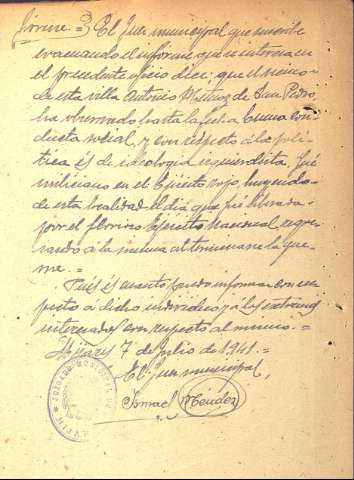 forme =3 El Juez municipal que suscribe
evacuando el informe que se interesa en
el precedente oficio dice: que el vecino
de esta villa Antonio Muñoz de San Pedro,
ha observado hasta la fecha buena con-
ducta social, y con respecto á la polí-
tica és de ideología izquierdista, fué
miliciano en el Ejército rojo, huyendo
de esta localidad el día que fué liberada
por el glorioso Ejército Nacional, regre-
sando á la misma al terminarse la gue-
rra.=
Qués és cuanto puedo informar con res-
pecto á dicho individuo y á los extremos
interesados con respecto al mismo.=
Mijares 7 de Julio de 1941.=
El Juez municipal,
Ismael Mendez
JUZGADO MUNICIPAL DE
MIJARES